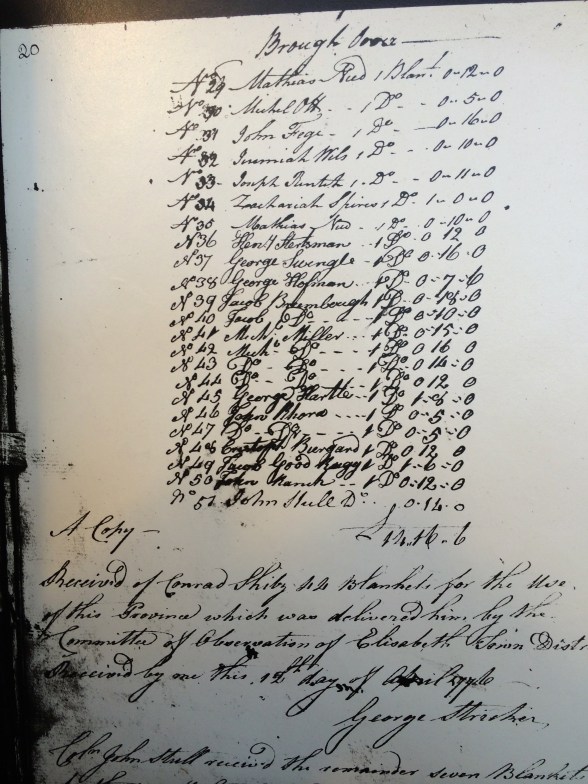 20
Brough Over
No 29 Mathias Need 1 Blant 0-12-0
No 30 Michel Ott - 1 Do - - 0-5-0
No 31 John Fege - 1 Do - 0-16-0
No 32 Jeremiah Wels 1 Do - - 0-10-0
No 33 - Joseph Rentch 1 Do - - 0-11-0
No 34 Zachariah Spires 1 Do 1-0-0
No 35 Mathias Need 1 Do 0-10-0
No 36 Henry 1 Do 0 12 0
No 37 George Swingle - 1 Do 0-16-0
No 38 George Hofman 1 Do 0-7-6
No 39 Jacob Brumbough 1 Do 0-18-0
No 40 Jacob Do - - 1 Do 0-10-0
No 41 Mich: Miller - - 1 Do 0-15-0
No 42 Mich Do - - 1 Do 0 16 0
No 43 Do Do - - 1 Do 0 14=0
No 44 Do Do - - 1 Do 0 12 0
No 45 George Hartle - 1 Do 1-8-0
No 46 John Rhora - - 1 Do 0-5-0
No 47 Do - Do - - 1 Do 0-5-0
No 48 Burgard 1 Do 0 12 0
No 49 Jacob Good 1 Do 1-6-0
No 50 John Ranch - 1 Do 0-12-0
No 51 John Stull Do - 0-14-0
A Copy - 6
Received of Conrad Shitz 44 Blankets for the Use
of this Province which was delivered him by the
Committee of Observation of Elisabeth Town Dist
Received by me this 12th Day of April 1776
George Stricker,
Coln John Stull receivd the remainder seven Blankets